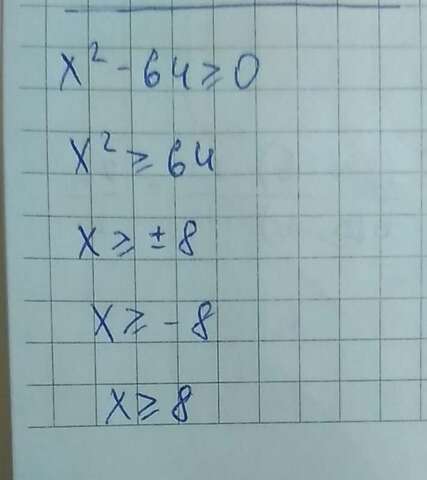 x² - 64 ≥ 0
x² ≥ 64
x ≥ ± 8
x ≥ - 8
x ≥ 8